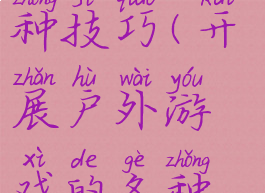 zhǒng jì qiǎo kāi
种技巧(开
zhǎn hù wài yóu
展户外游
xì de gè zhǒng
戏的各种